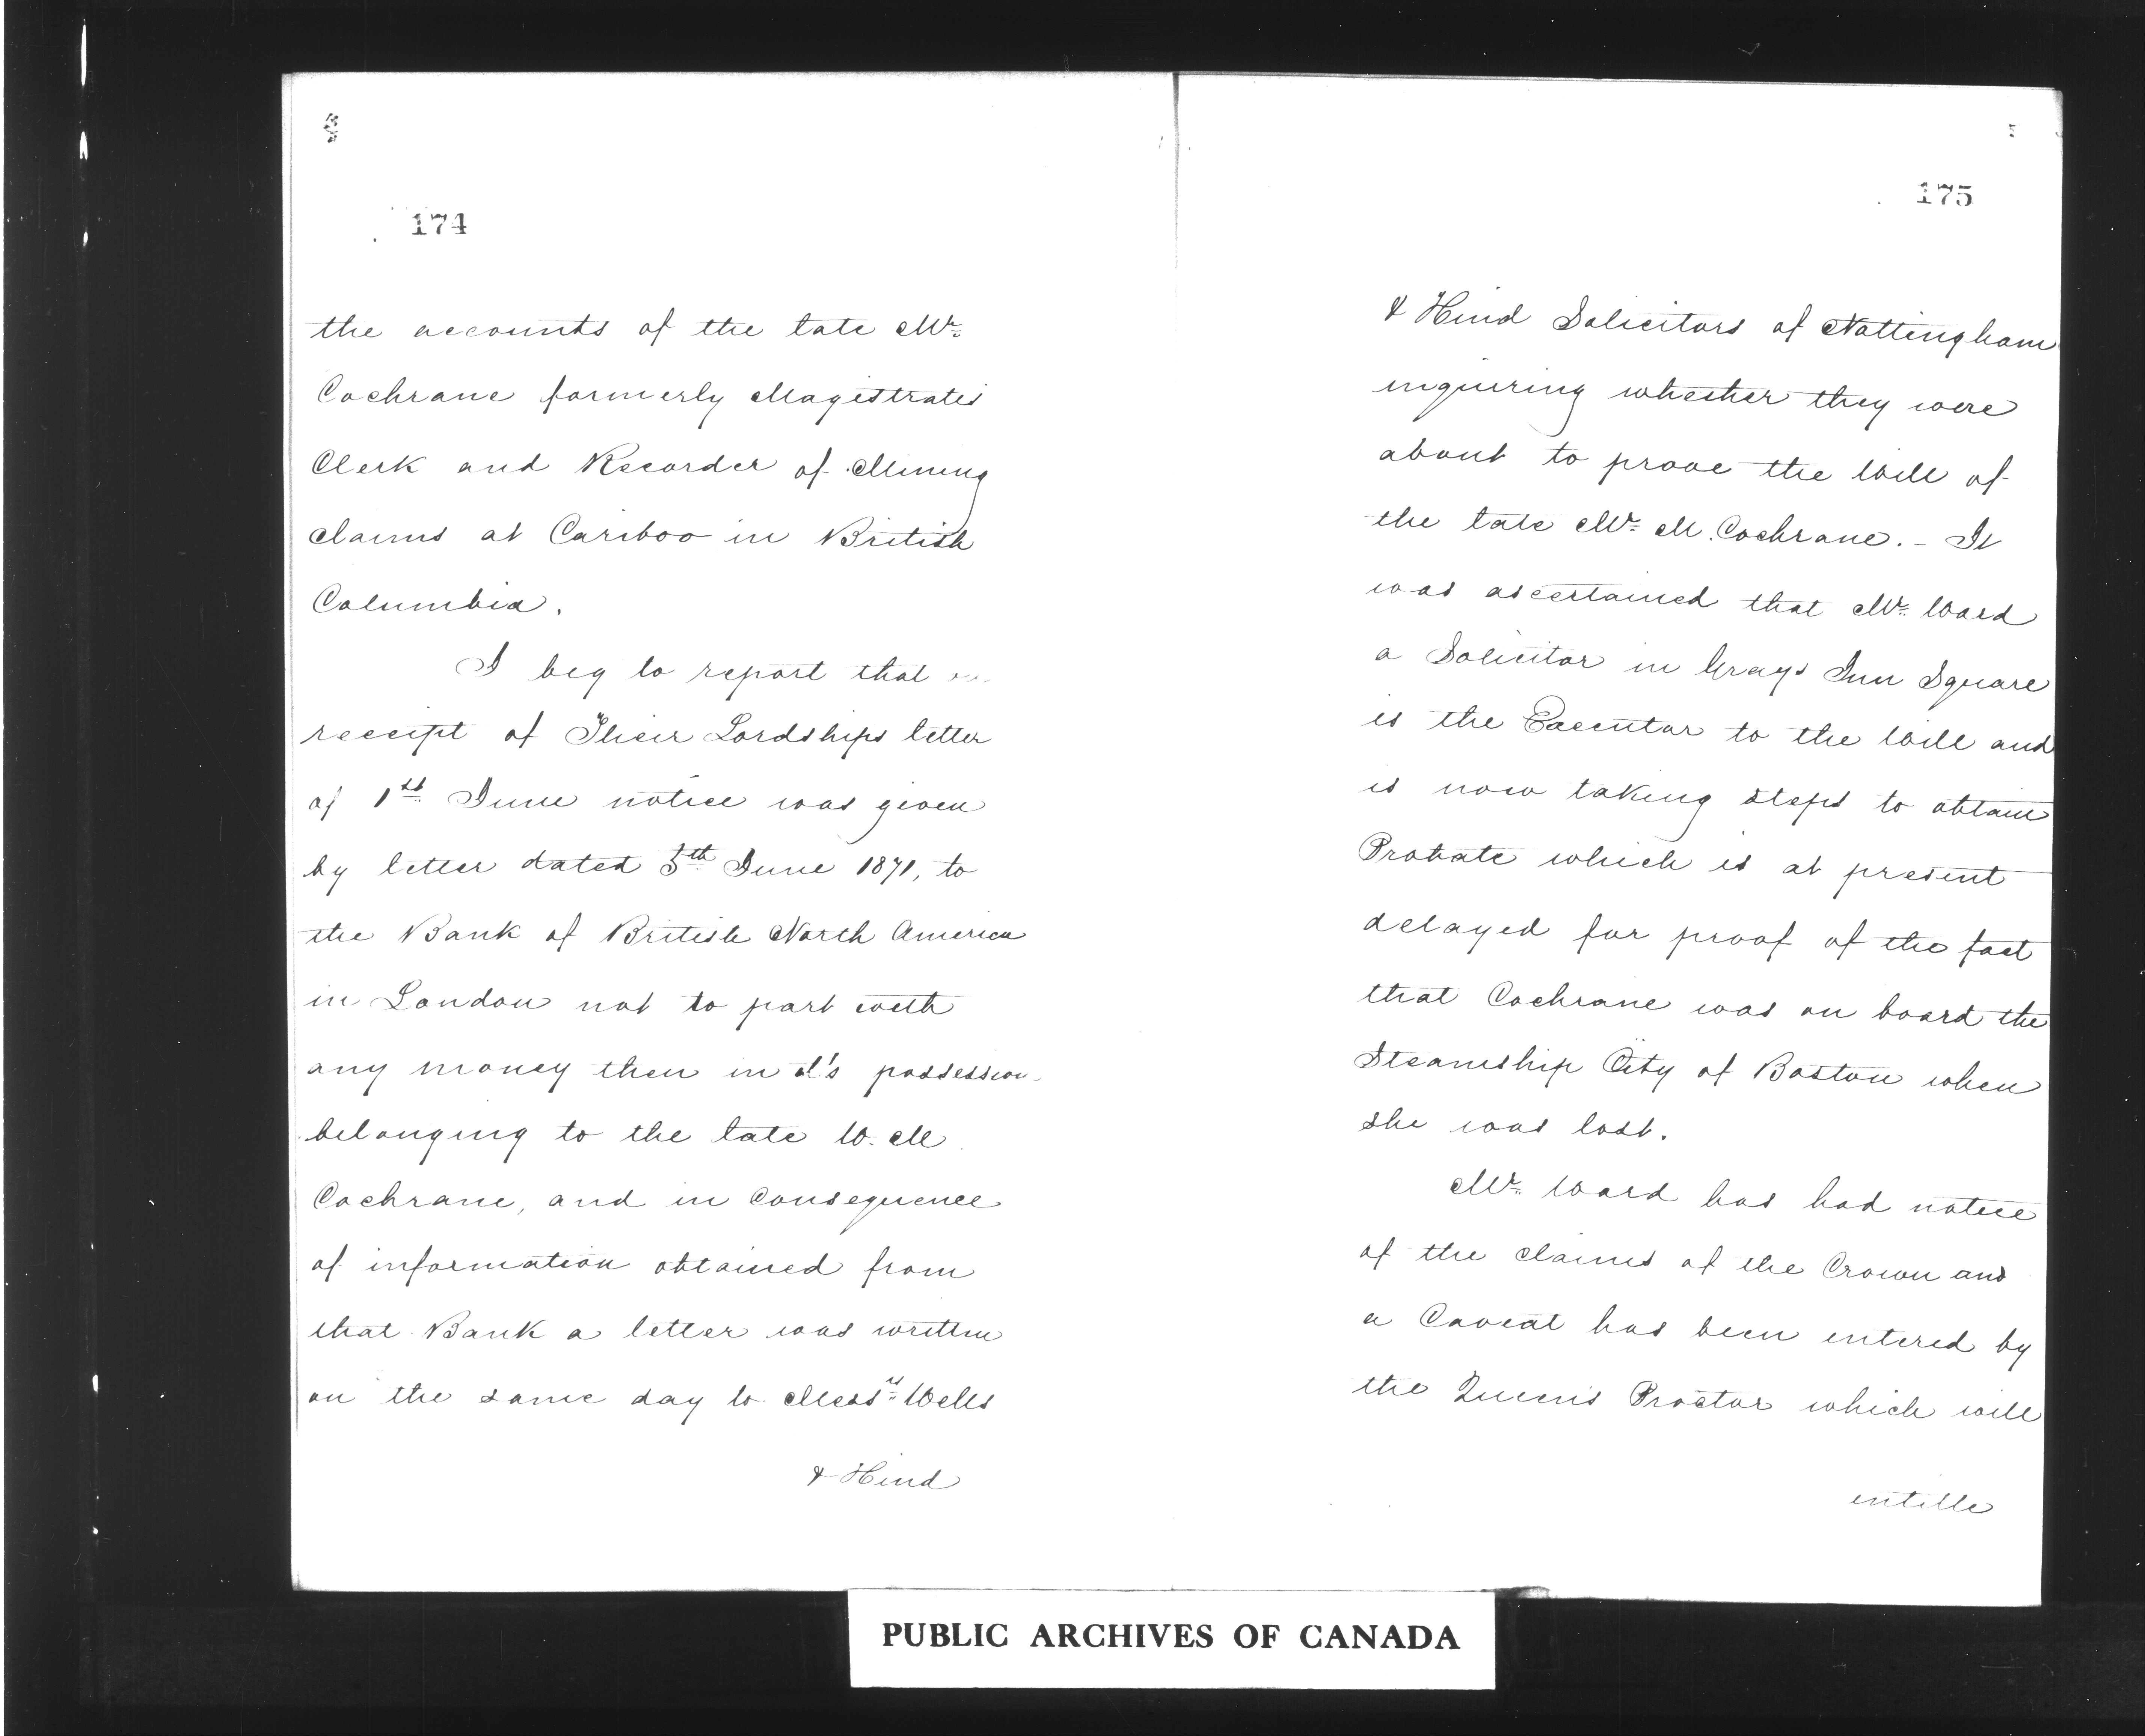 174
the accounts of the late Mr.
Cochrane formerly Magistrates
Clerk and Recorder of Mining
claims at Cariboo in British
Columbia.
I beg to report that on
receipt of Their Lordships letter
of 1st June notice was given
by letter dated 5th June 1871, to
the Bank of British North America
in London not to part with
any money then in it's possession
belonging to the late W. M
Cochrane, and in consequence
of information obtained from
that Bank a letter was written
on the same day to Messrs Wells
& Hind
175
& Hind Solicitors of Nottingham
inquiring whether they were
about to prove the Will of
the late Mr. M. Cochrane. - It
was ascertained that Mr. Ward
a Solicitor in Grays Inn Square
is the Executor to the Will and
is now taking steps to obtain
Probate which is at present
delayed for proof of the fact
that Cochrane was on board the
Steamship City of Boston when
she was lost.
Mr. Ward has had notice
of the claims of the Crown and
a Caveat has been entered by
the Queen's Proctor which will
entitle
PUBLIC ARCHIVES OF CANADA